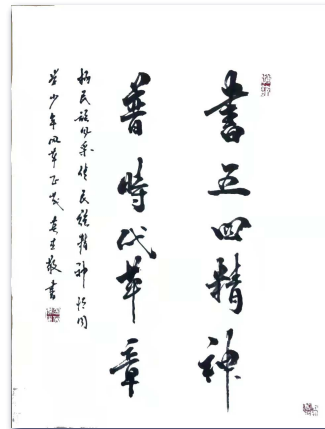 書五四精神
普時代華章
民族风采传民族精神恰同
学少年风华正茂 敬書